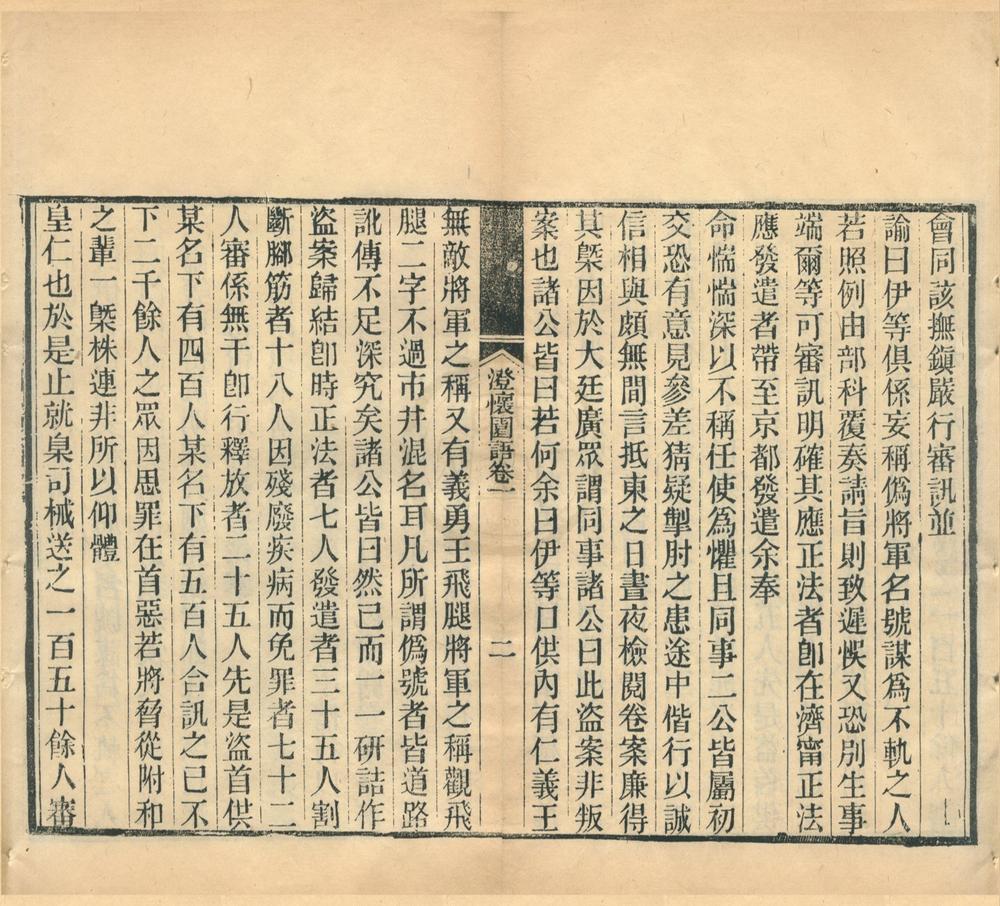 會同該撫鎭嚴行審訊並
諭曰伊等俱係妄稱僞將軍名號謀爲不軌之人
若照例由部科覆奏請旨則致遲悞又恐別生事
端爾等可審訊明確其應正法者卽在濟甯正法
應發遣者帶至京都發遣余奉
命惴惴深以不稱任使爲懼且同事二公皆屬初
交恐有意見參差猜疑掣肘之患途中偕行以誠
信相與頗無間言抵東之日晝夜檢閱卷案廉得
其槩因於大廷廣眾謂同事諸公曰此盜案非叛
案也諸公皆曰若何余曰伊等口供內有仁義王
澄懷園語卷一
二
無敵將軍之稱又有義勇王飛腿將軍之稱觀飛
腿二字不過市井混名耳凡所謂僞號者皆道路
訛傳不足深究矣諸公皆曰然已而一一研詰作
盜案歸結卽時正法者七人發遣者三十五人割
斷腳筋者十八人因殘廢疾病而免罪者七十二
人審係無干卽行釋放者二十五人先是盜首供
某名下有四百人某名下有五百人合訊之已不
下二千餘人之眾因思罪在首惡若將脅從附和
之輩一槩株連非所以仰體
皇仁也於是止就臬司械送之一百五十餘人審